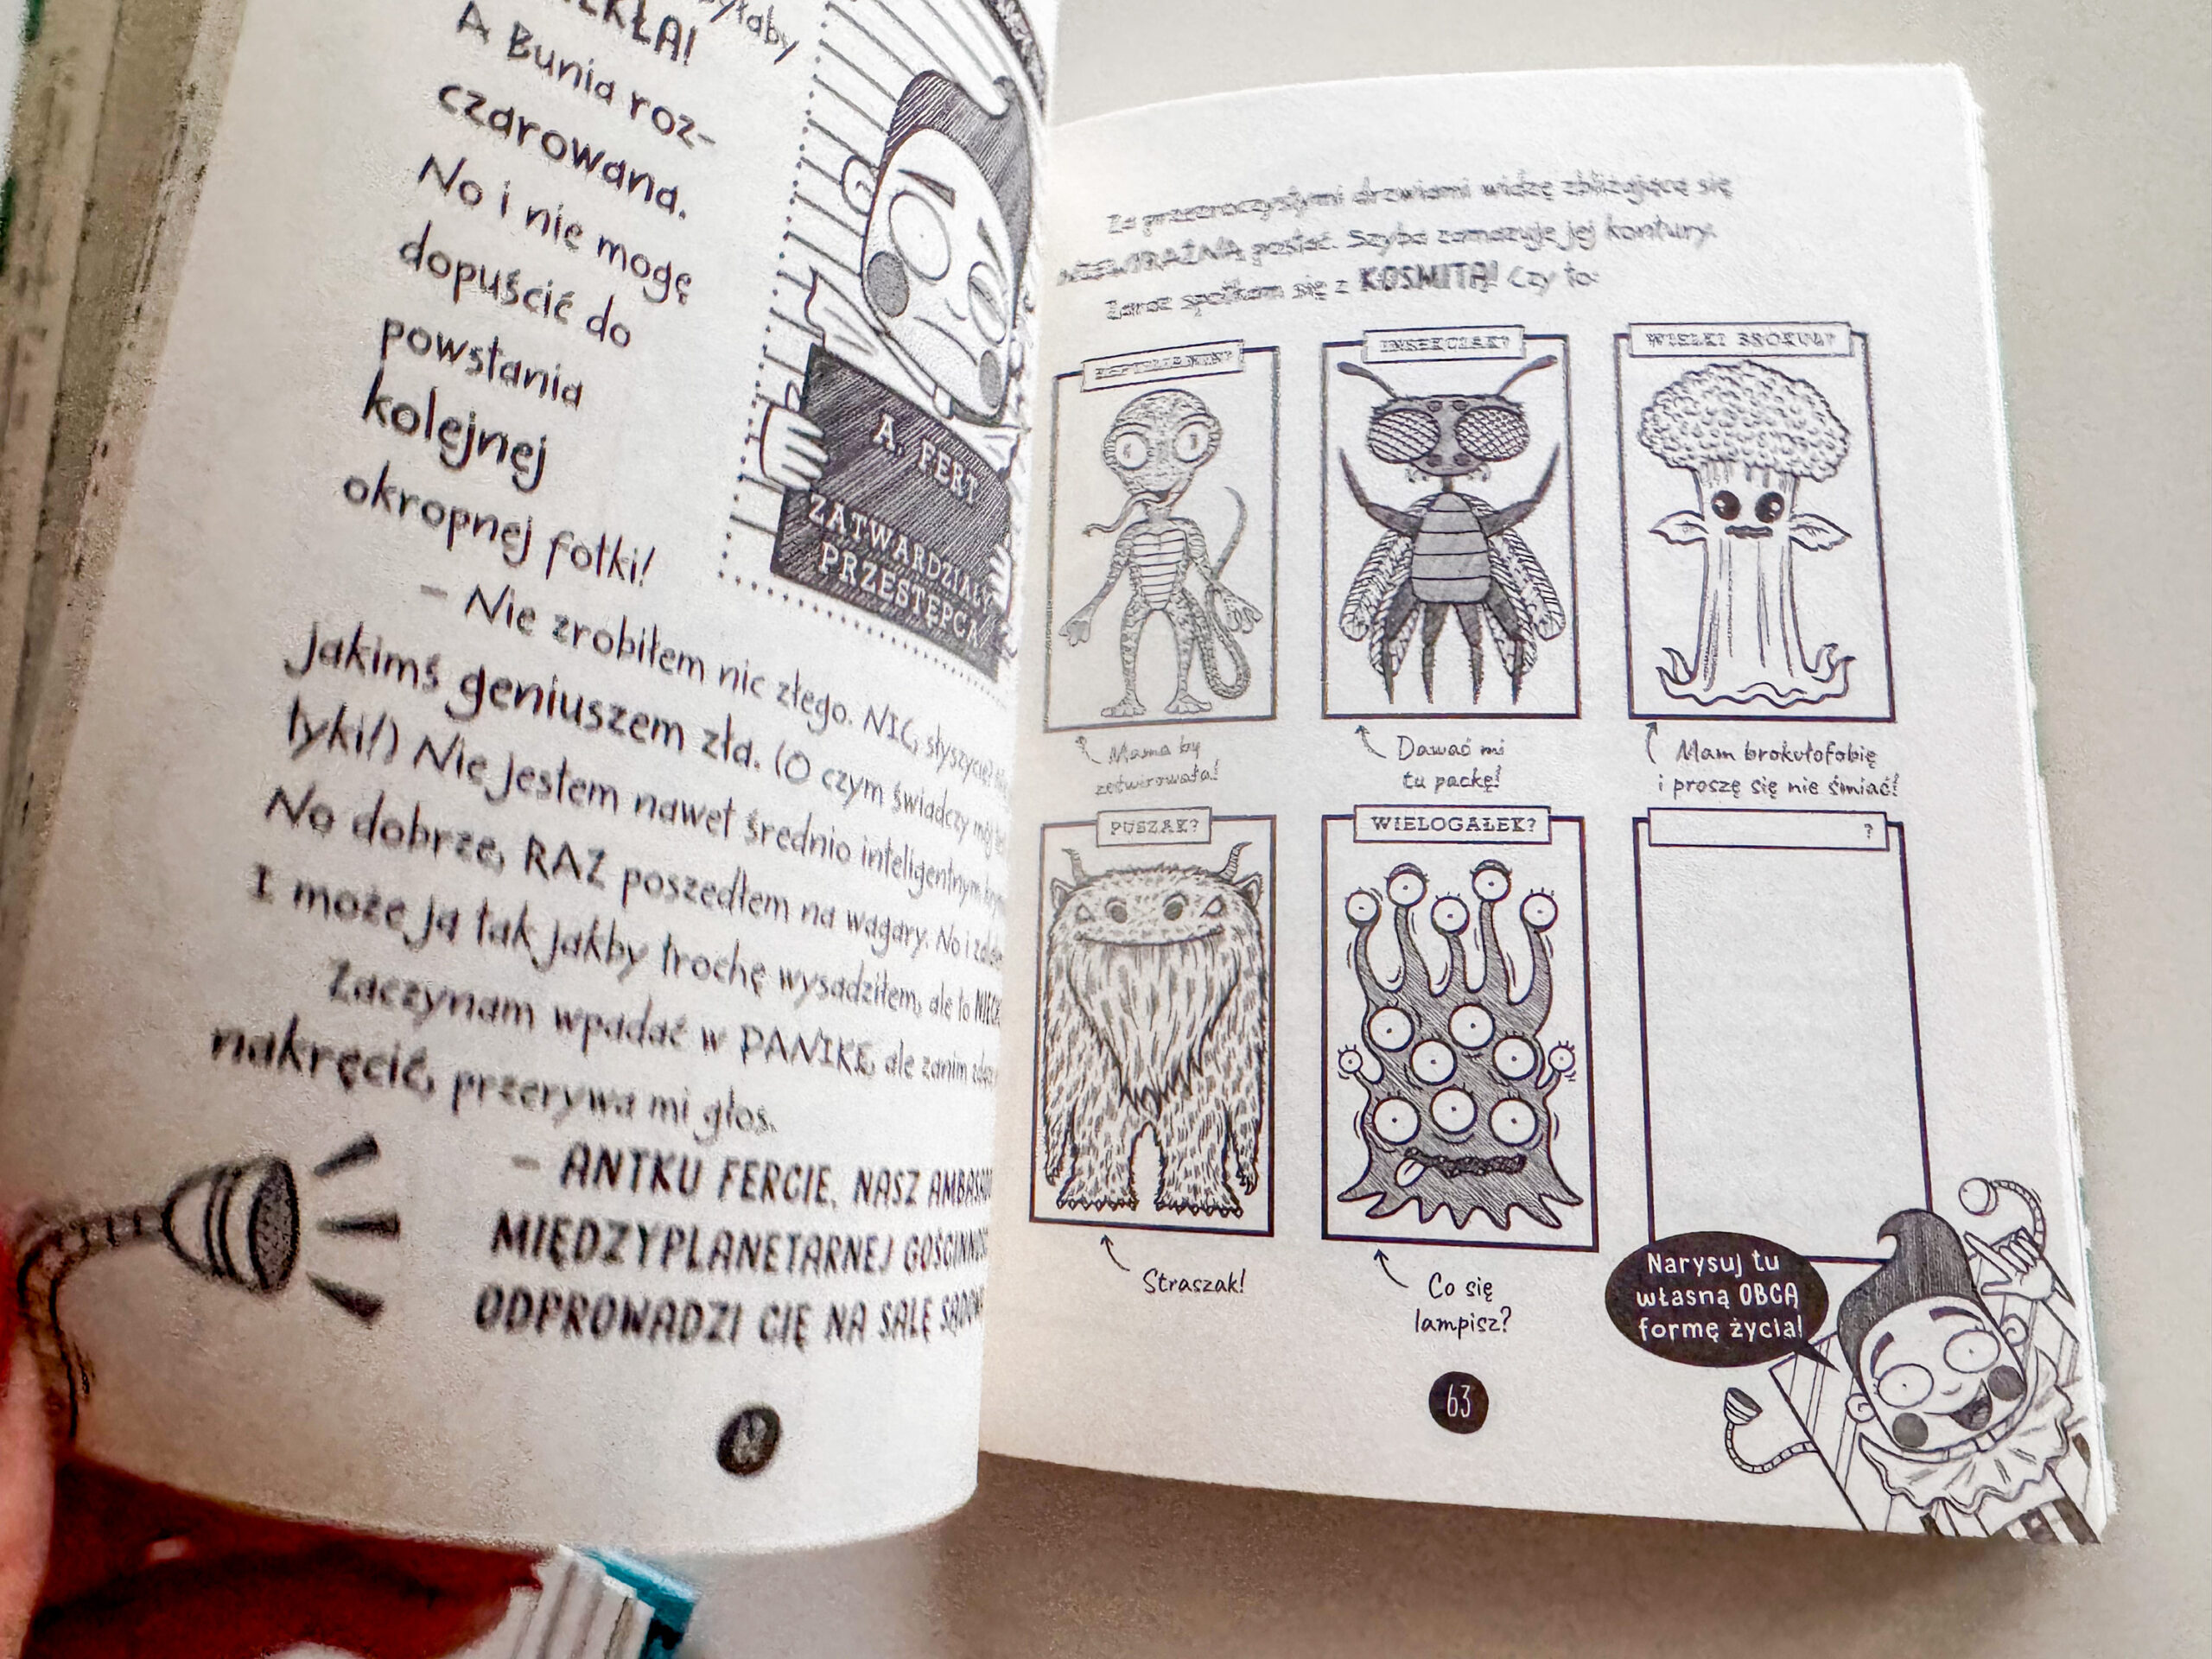 A Bunia roz-
czarowana.
No i nie mogę
dopuścić do
powstania
kolejnej
okropnej fotki!
A. FERT
ZATWARDZIAŁY
PRZESTĘPCA
– Nie zrobiłem nic złego. NIC, słyszycie?
jakimś geniuszem zła. (O czym świadczy mój
tyki!) Nie jestem nawet średnio inteligentnym
No dobrze, RAZ poszedłem na wagary. No i
I może ja tak jakby trochę wysadziłem, ale to
Zaczynam wpadać w PANIKĘ, ale zanim
nakręcić, przerywa mi głos.
– ANTKU FERCIE, NASZ
MIĘDZYPLANETARNEJ
ODPROWADZI CIĘ NA SALĘ
Za przezroczystymi drzwiami widzę zbliżającą się
NIEWYRAŹNĄ postać. Szyba zamazuje jej kontury.
Zaraz spotkam się z KOSMITĄ! Czy to:
REPTILIANIN?
INSEKCIAK?
WIELKI BROKUŁ?
Mama by
ześwirowała!
Dawać mi
tu packę!
Mam brokułofobię
i proszę się nie śmiać!
PUSZAK?
WIELOGAŁEK?
?
Straszak!
Co się
lampisz?
Narysuj tu
własną OBCĄ
formę życia!
63